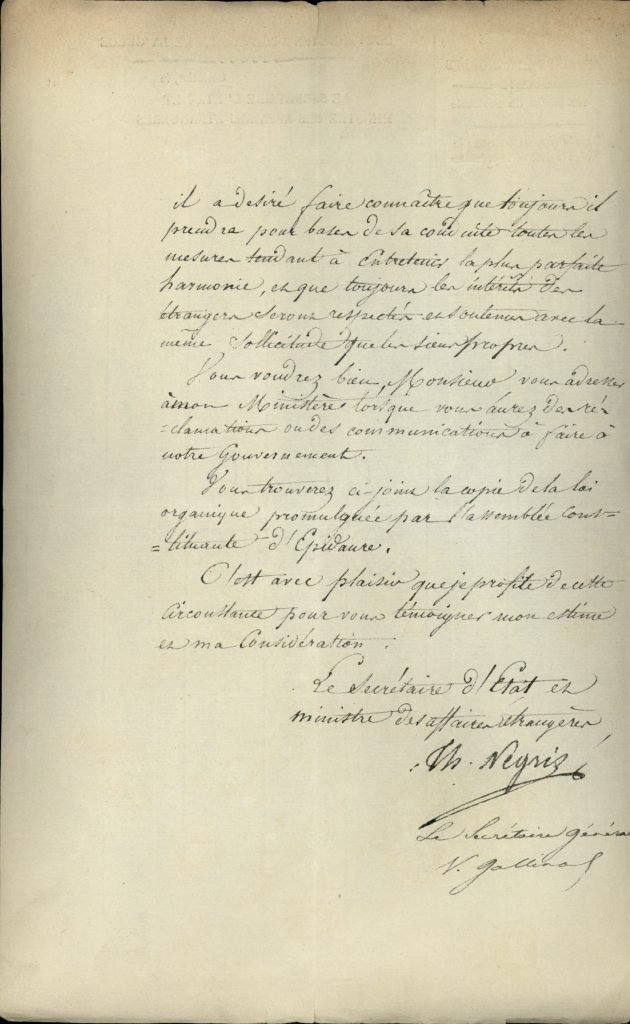 il a desiré faire connaître que toujours il
prendra pour bases de sa conduite toutes les
mesures tendant à entretenir la plus parfaite
harmonie, et que toujours les intérêts des
étrangers seront respectés et soutenus avec la
même sollicitude que les siens propres.
Vous voudrez bien, Monsieur vous adresser
à mon Ministère lorsque vous aurez des ré-
=clamations ou des communications à faire à
notre Gouvernement.
Vous trouverez ci-joint la copie de la loi
organique promulguée par l'assemblée Const-
=tituante d'Epidaure.
C'est avec plaisir que je profite de cette
circonstance pour vous témoigner mon estime
et ma Considération.
Le Secrétaire d'Etat et
ministre des affaires étrangères
Th. Négris
Le Secrétaire général
V. Gallina